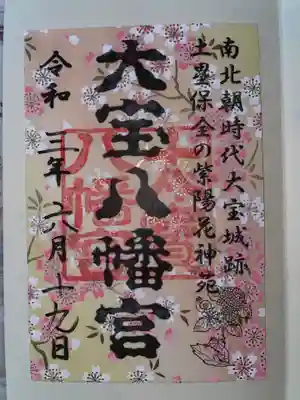 南北朝時代大宝城跡
土塁保全の紫陽花神苑
大宝八幡宮
令和三年六月十九日
大宝八幡宮